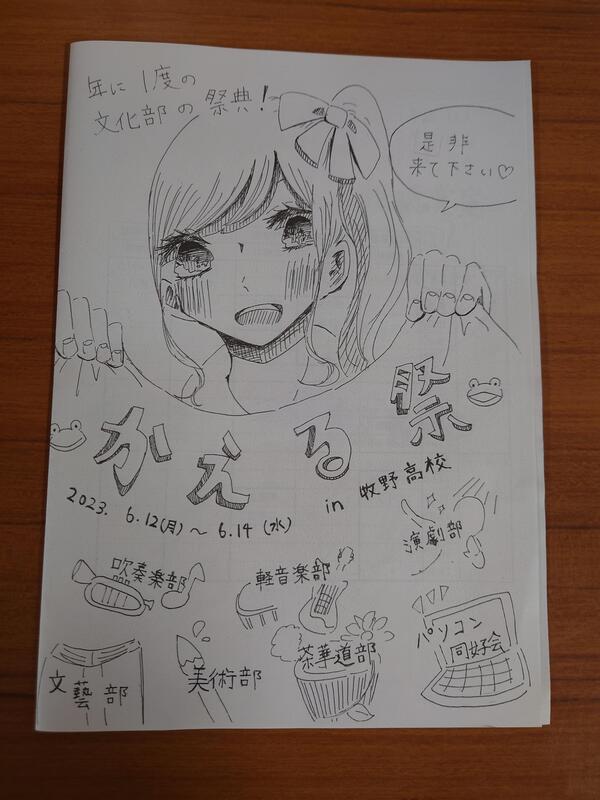 年に1度の
文化部の祭典!
是非
来て下さい♡
かえる祭
2023. 6.12(月)～6.14(水)
in 牧野高校
演劇部
吹奏楽部
軽音楽部
パソコン
同好会
文藝部
美術部
茶華道部